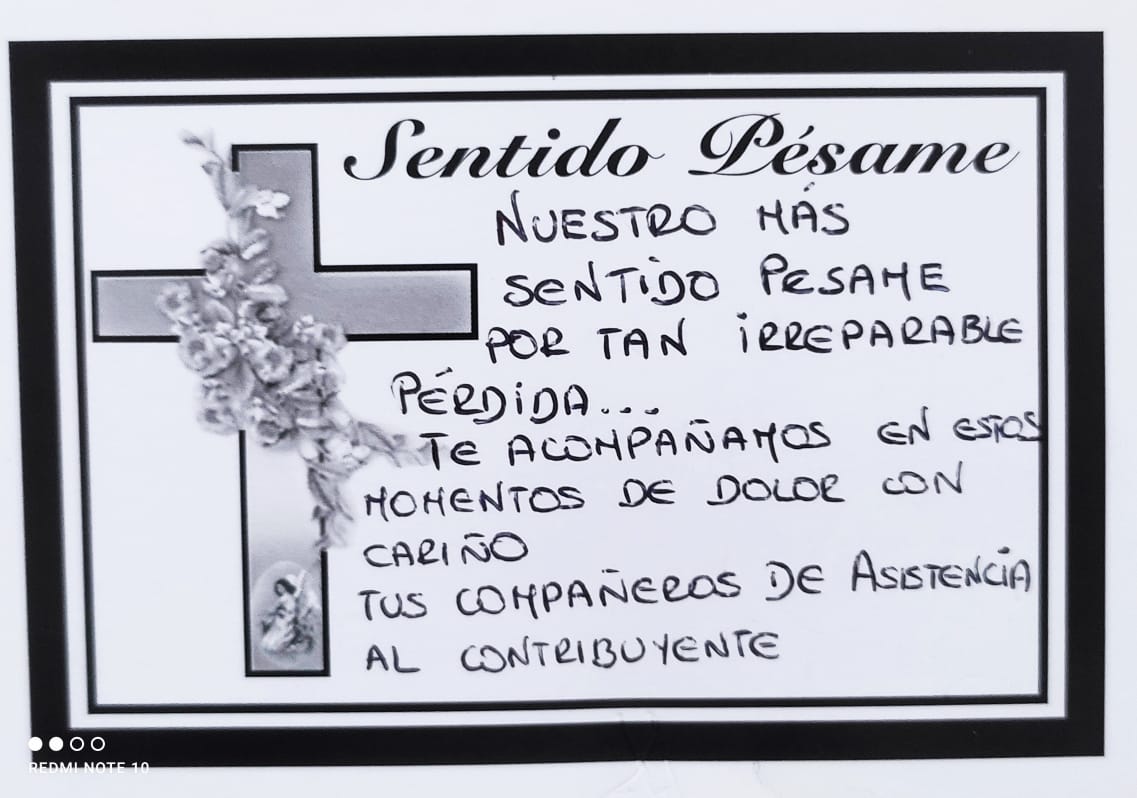 Sentido Pésame
NUESTRO MÁS
SENTIDO PESAME
POR TAN IRREPARABLE
PÉRDIDA...
TE ACOMPAÑAMOS EN ESTOS
MOMENTOS DE DOLOR CON
CARIÑO
TUS COMPAÑEROS DE ASISTENCIA
AL CONTRIBUYENTE
REDMI NOTE 10